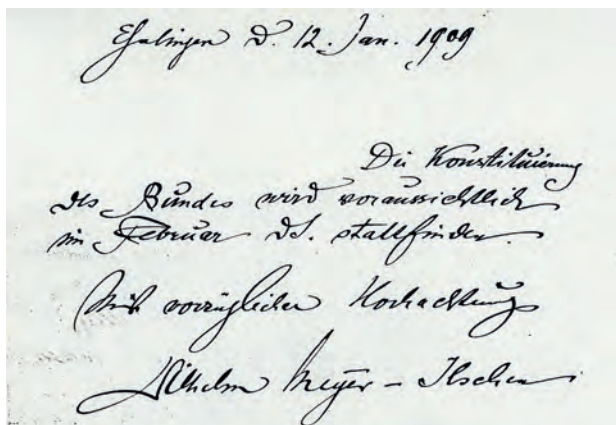 Eßlingen d. 12. Jan. 1909
Die Konstituierung
des Bundes wird voraussichtlich
im Februar ds. stattfinden.
Mit vorzüglicher Hochachtung
Wilhelm Meyer-Ilschen